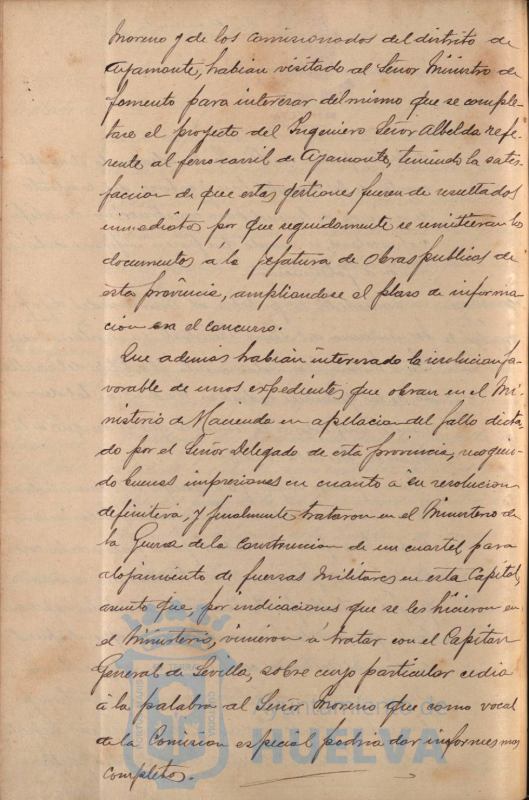 Moreno y de los comisionados del distrito de
Ayamonte, habian visitado al Señor Ministro de
fomento para interesar del mismo que se comple-
tase el proyecto del Ingeniero Señor Albelda refe-
rente al ferrocarril de Ayamonte, teniendo la satis-
faccion de que estas gestiones fueran de resultados
inmediatos por que seguidamente se remitieran los
documentos á la jefatura de Obras publicas de
esta provincia, ampliandose el plaso de informa
cion en el concurso.
Que ademas habian interesado la resolucion fa-
vorable de unos expedientes que obran en el Mi-
nisterio de Hacienda en apelacion del fallo dicta-
do por el Señor Delegado de esta provincia, recogien-
do buenas impresiones en cuanto á su resolucion
definitiva, y finalmente trataron en el Ministerio de
la Guerra de la Construccion de un cuartel para
alojamiento de fuerzas militares en esta Capital,
asunto que, por indicaciones que se les hicieron en
el Ministerio, vinieron á tratar con el Capitan
General de Sevilla, sobre cuyo particular cedia
á la palabra al Señor Moreno que como vocal
de la Comision especial podria dar informes mas
completos.
Ayuntamiento de
HUELVA